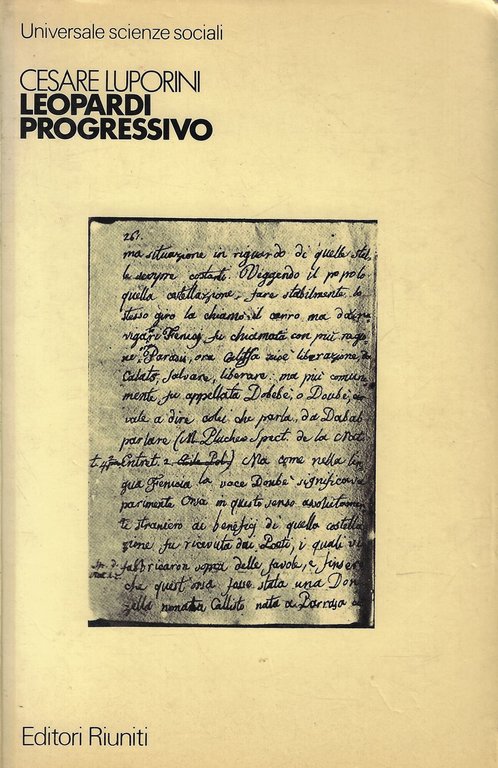 Universale scienze sociali
CESARE LUPORINI
LEOPARDI
PROGRESSIVO
261.
ma situazione in riguardo di quelle stel-
le sempre costanti. Veggendo il popolo
quella costellazione fare stabilmente lo
stesso giro la chiamò il carro, ma dai na
viganti Fenicj fu chiamata con più rago
ne Parasis, ora Califfa
Calato, salvare, liberare: ma più comun
mente fu appellata Dobebè, o Doubè, 
vale a dire colei che parla, da Dabab
parlare (M. Pluche Spect. de la Nat.
t. 4. Entret. 2. ) Ma come nella lin
gua Fenicia la voce Doubè significava
parimente Orsa in questo senso
te straniero ai beneficj di quella costella
zione fu ricevuta dai Poeti, i quali vi
fabbricaron sopra delle favole, e finser
che quest'orsa fosse stata una Don
zella nomata Callisto nata a Parrasa
Editori Riuniti